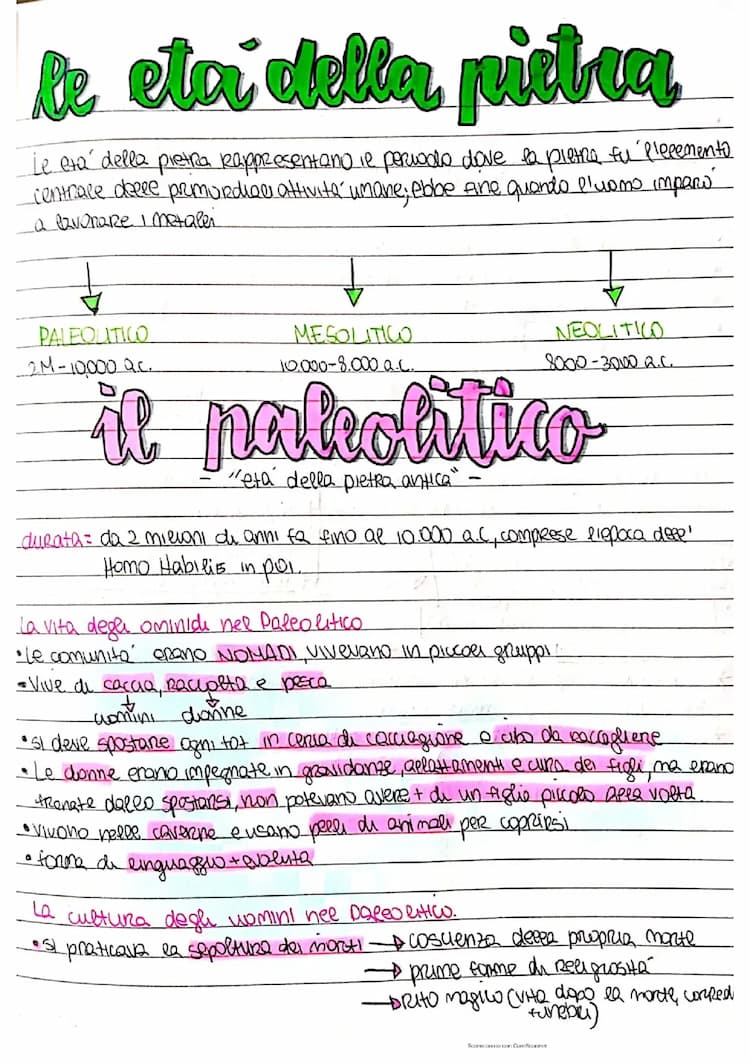 le età della pietra
Le età della pietra rappresentano il periodo dove la pietra fu l'elemento
centrale delle primordiali attività umane; ebbe fine quando l'uomo imparò
a lavorare i metalli
PALEOLITICO MESOLITICO NEOLITICO
2M-10,000 a.c. 10.000-8.000 a.C. 8000-3000 a.C.
il paleolitico
- "età della pietra antica" -
durata= da 2 milioni di anni fa fino al 10.000 a.C, comprese l'epoca dell'
Homo Habilis in poi.
La vita degli ominidi nel Paleolitico
•Le comunità erano NOMADI, vivevano in piccoli gruppi
•Vive di caccia, raccolta e pesca
uomini donne
•si deve spostare ogni tot in cerca di cacciagione o cibo da raccogliere
•Le donne erano impegnate in gravidanze, allattamenti e cura dei figli, ma erano
frenate dallo spostarsi, non potevano avere + di un figlio piccolo alla volta.
•vivono nelle caverne e usano pelli di animali per coprirsi
•forma di linguaggio + evoluta
La cultura degli uomini nel Paleolitico.
•si praticava la sepoltura dei morti → coscienza della propria morte
→ prime forme di religiosità
→ Rito magico (vita dopo la morte, corredi
funebri)